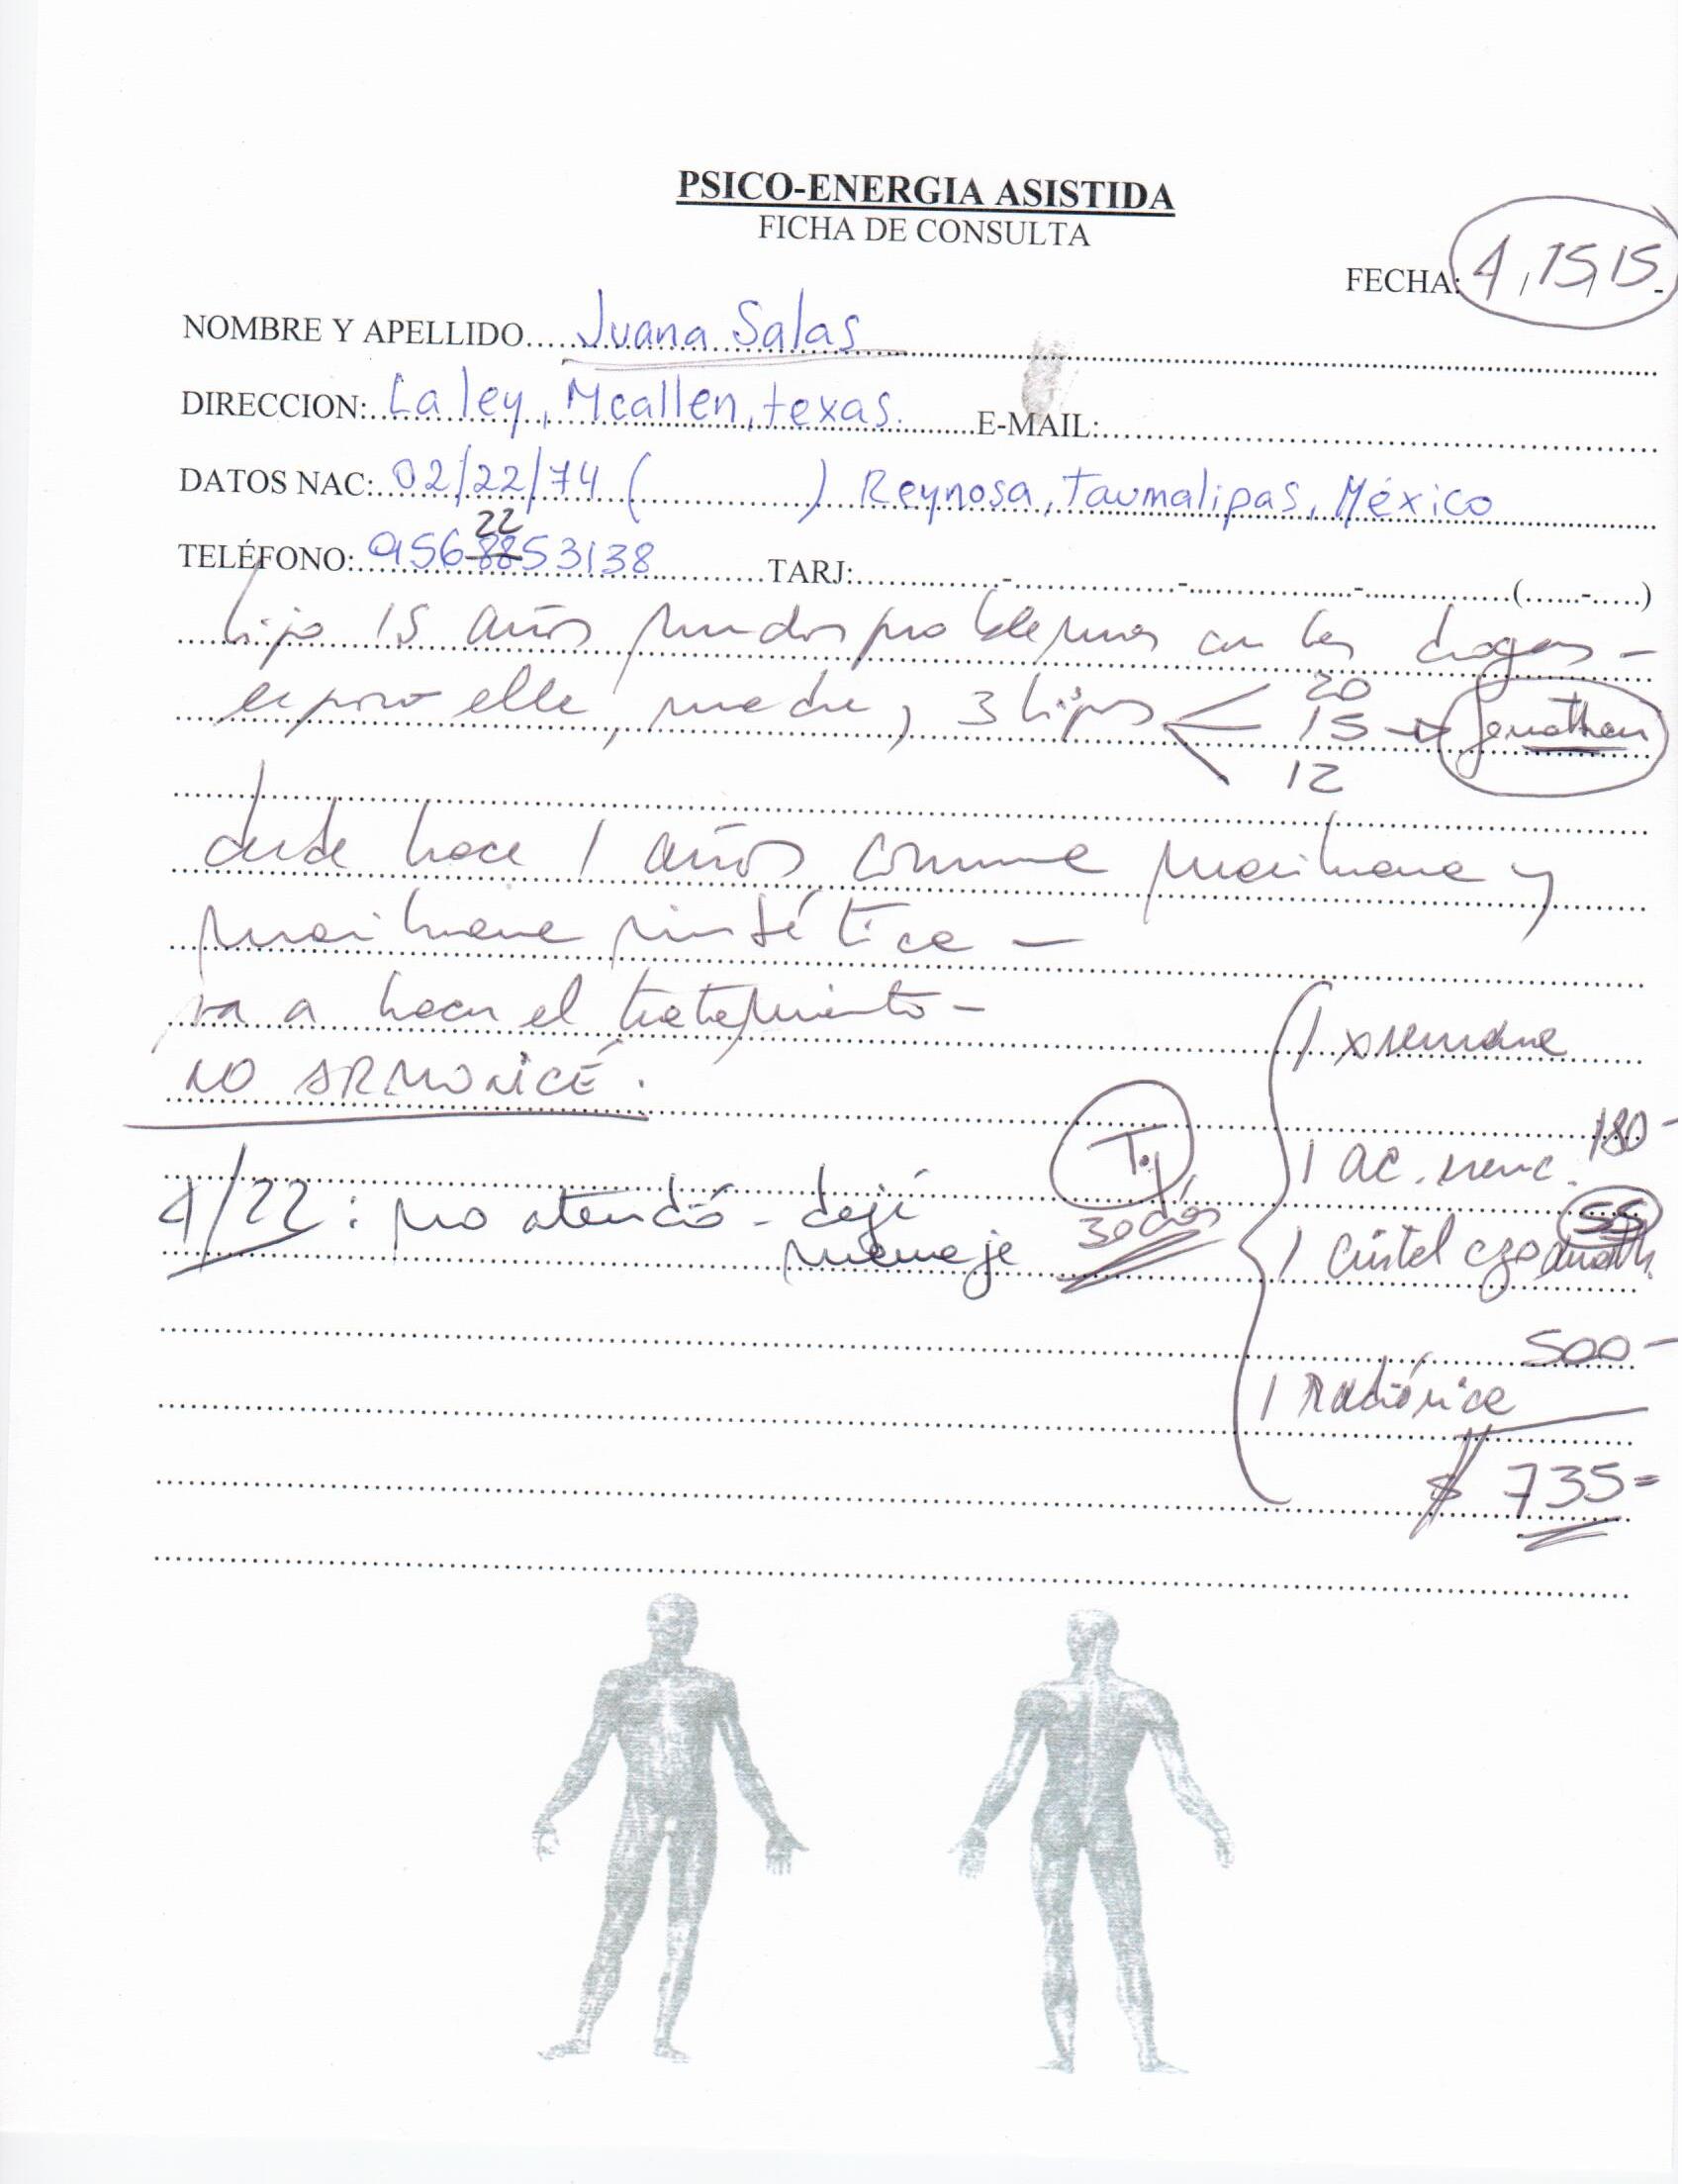 PSICO-ENERGIA ASISTIDA
FICHA DE CONSULTA
FECHA: 4/15/15
NOMBRE Y APELLIDO Juana Salas
DIRECCION: La ley, Mcallen, texas. E-MAIL:
DATOS NAC: 02/22/74 ( ) Reynosa, Taumalipas, México
22
TELÉFONO: 956 88 53138 TARJ: - - - ( - )
hijo 15 años muchos problemas con las drogas -
esposo ella, madre, 3 hijos 20
15 → Jonathan
12
desde hace 1 años consume marihuana y
marihuana sintética -
va a hacer el tratamiento -
1 x semana
NO ARMONICÉ.
180 -
T.
1 ac.
4/22: no atendió - dejé
mensaje
30 días
55
1 cristal
500 -
1 Radiónica
$ 735 =